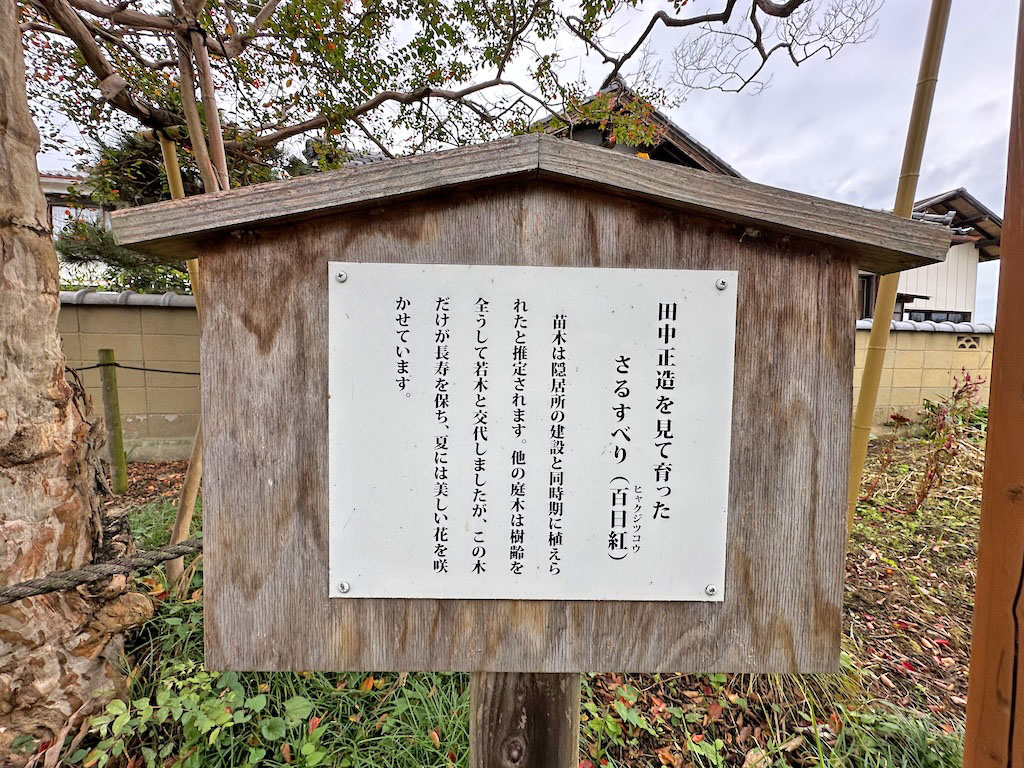 田中正造を見て育った
さるすべり（百日紅）
ヒャクジツコウ
苗木は隠居所の建設と同時期に植えら
れたと推定されます。他の庭木は樹齢を
全うして若木と交代しましたが、この木
だけが長寿を保ち、夏には美しい花を咲
かせています。